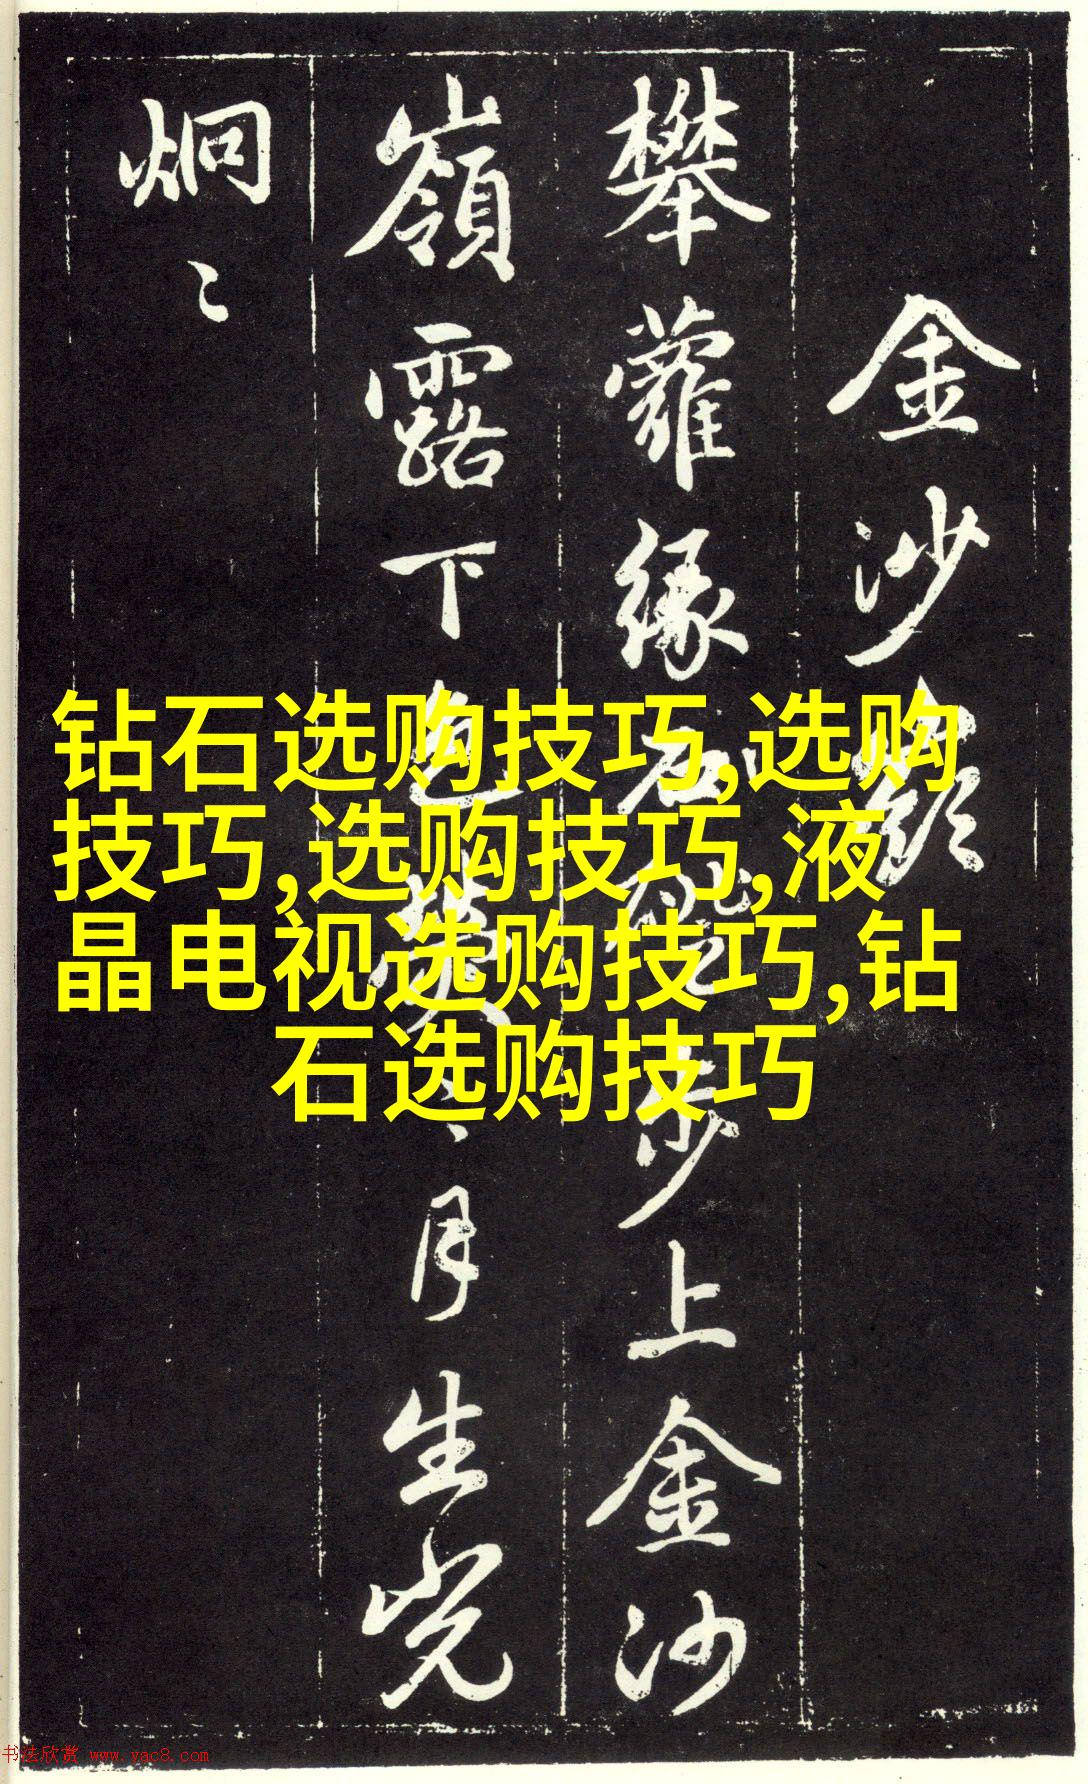 金沙嶺
攀蘿緣石步上金沙
嶺露下色月生光
炯〻
钻石选购技巧,选购
技巧,选购技巧,液
晶电视选购技巧,钻
石选购技巧
书法欣赏 www.yac8.com